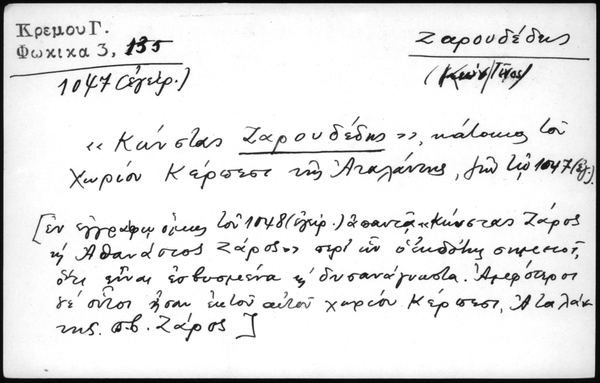 Κρεμου Γ.
Φωκικα 3, 135
1047 (ἐγείρ.)
Ζαρουδέδης
(Κώνσ/τῖνος)
«Κώνστας Ζαρουδέδης», κάτοικος τοῦ
χωρίου Κέρπεσι τῆς Ἀταλάντης, ζῶν τῷ 1047 (ἐγ.).
[ἐν ἐγγράφῳ ὅμως τοῦ 1048 (ἐγείρ.) ἀπαντᾷ «Κώνστας Ζάρος
κὶ Ἀθανάσιος Ζάρος» περὶ ὧν ὁ ἐκδότης σημειοῖ,
ὅτι εἶναι ἐσβυσμένα κὶ δυσανάγνωστα. Ἀμφότεροι
δέ οὗτοι ἦσαν ἐκ τοῦ αὐτοῦ χωρίου Κέρπεσι, Ἀταλάν
της. π.β. Ζάρος]